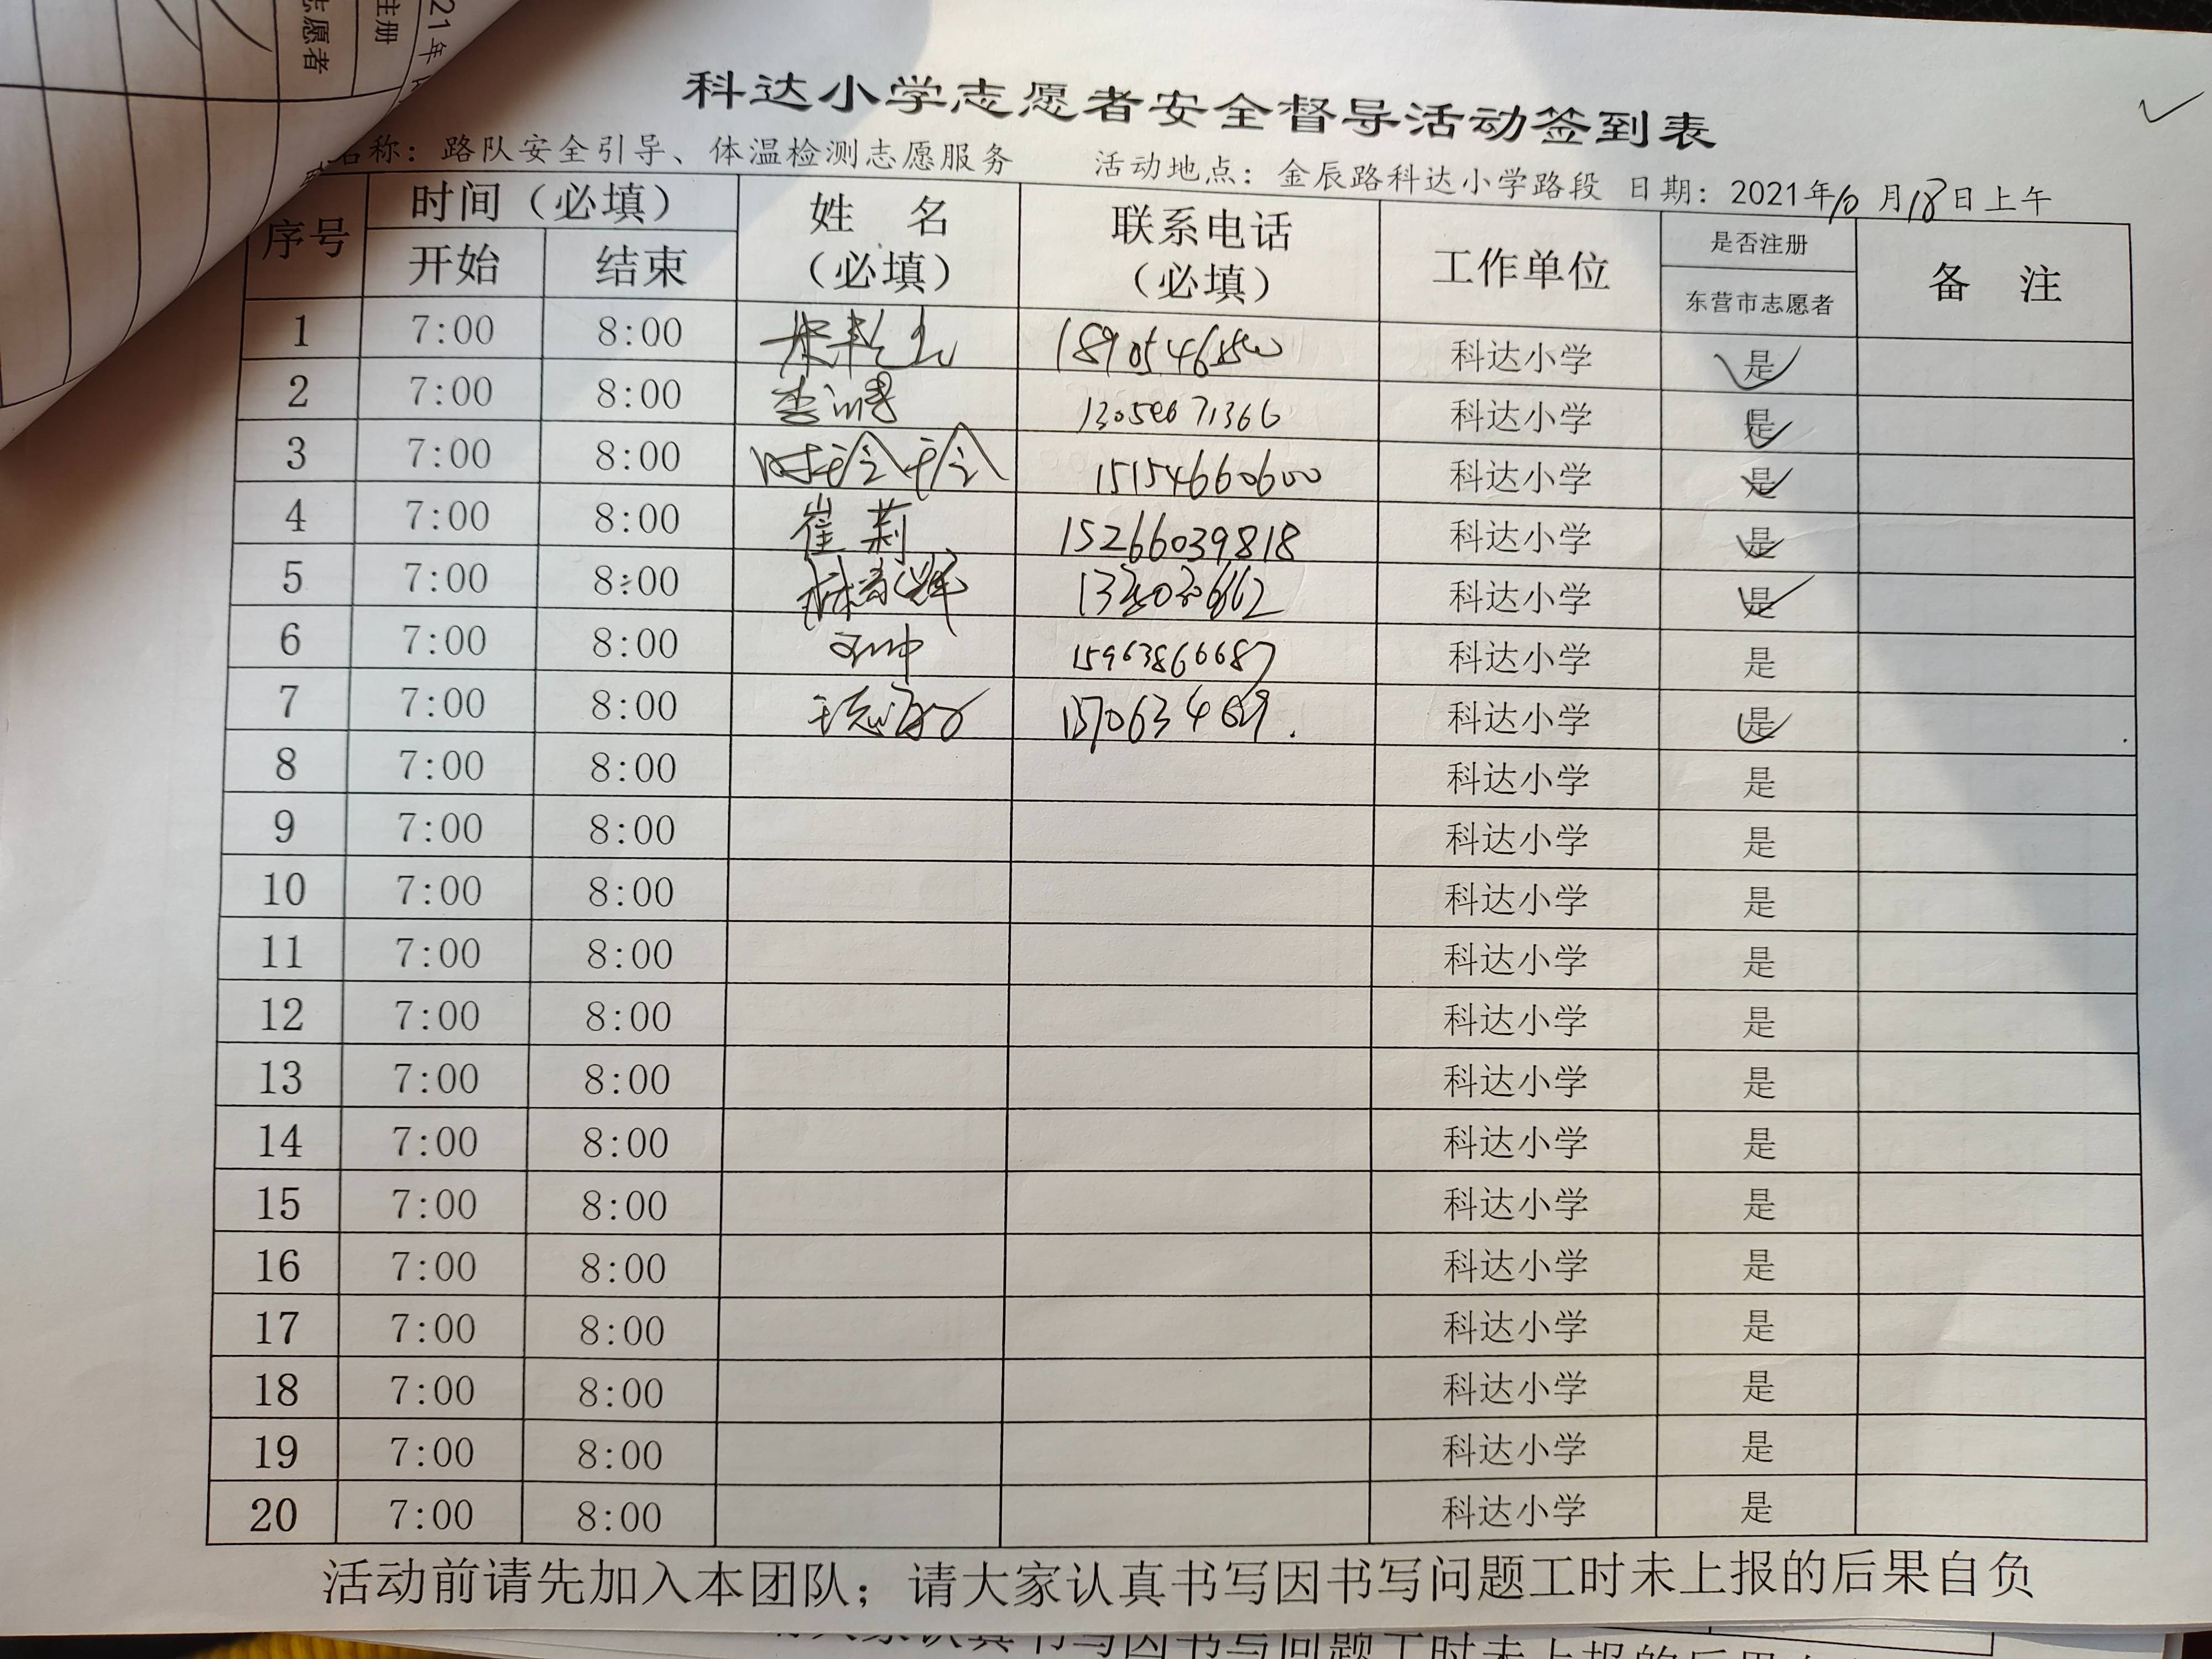 21年
注册
志愿者
科达小学志愿者安全督导活动签到表
名称：路队安全引导、体温检测志愿服务 活动地点：金辰路科达小学路段 日期：2021年10月18日上午
序号 时间（必填） 姓 名（必填） 联系电话（必填） 工作单位 是否注册 备 注
开始 结束 东营市志愿者
1 7:00 8:00 科达小学 是
2 7:00 8:00 科达小学 是
3 7:00 8:00 15154660600 科达小学 是
4 7:00 8:00 崔莉 15266039818 科达小学 是
5 7:00 8:00 科达小学 是
6 7:00 8:00 15963866687 科达小学 是
7 7:00 8:00 科达小学 是
8 7:00 8:00 科达小学 是
9 7:00 8:00 科达小学 是
10 7:00 8:00 科达小学 是
11 7:00 8:00 科达小学 是
12 7:00 8:00 科达小学 是
13 7:00 8:00 科达小学 是
14 7:00 8:00 科达小学 是
15 7:00 8:00 科达小学 是
16 7:00 8:00 科达小学 是
17 7:00 8:00 科达小学 是
18 7:00 8:00 科达小学 是
19 7:00 8:00 科达小学 是
20 7:00 8:00 科达小学 是
活动前请先加入本团队；请大家认真书写因书写问题工时未上报的后果自负